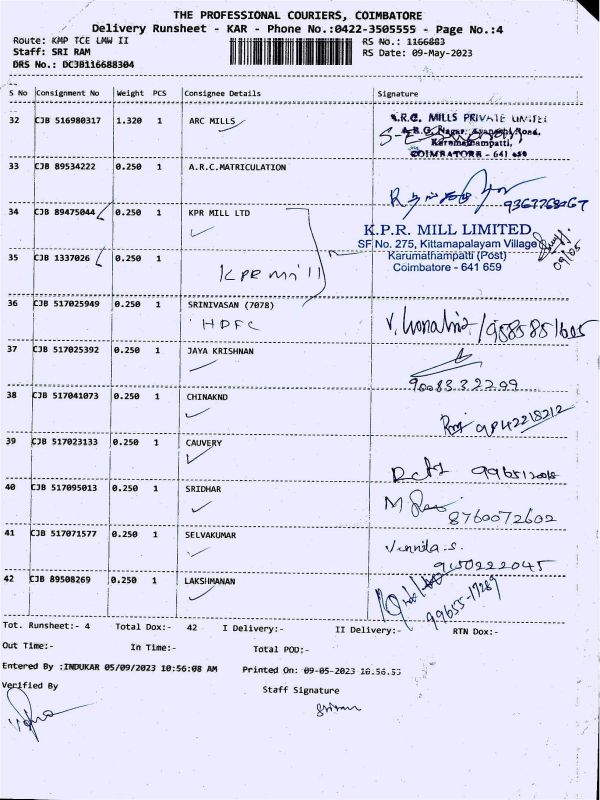 THE PROFESSIONAL COURIERS, COIMBATORE
Delivery Runsheet - KAR - Phone No.:0422-3505555 - Page No.:4
Route: KMP TCE LMW II RS No.: 1166883
Staff: SRI RAM RS Date: 09-May-2023
DRS No.: DCJB116688304
S No Consignment No Weight PCS Consignee Details Signature
32 CJB 516980317 1.320 1 ARC MILLS
A.R.C. MILLS PRIVATE LIMITED
Karumathampatti,
COIMBATORE - 641 659
33 CJB 89534222 0.250 1 A.R.C.MATRICULATION
9367768067
34 CJB 89475044 0.250 1 KPR MILL LTD
K.P.R. MILL LIMITED
SF No. 275, Kittamapalayam Village
Karumathampatti (Post)
Coimbatore - 641 659
09/05
35 CJB 1337026 0.250 1
KPR Mill
36 CJB 517025949 0.250 1 SRINIVASAN (7078)
HDFC
9585851605
37 CJB 517025392 0.250 1 JAYA KRISHNAN
9008332209
38 CJB 517041073 0.250 1 CHINAKND
9842218212
39 CJB 517023133 0.250 1 CAUVERY
40 CJB 517095013 0.250 1 SRIDHAR
8760072602
41 CJB 517071577 0.250 1 SELVAKUMAR
Vennila.S.
9150222045
42 CJB 89508269 0.250 1 LAKSHMANAN
99655-17289
Tot. Runsheet:- 4 Total Dox:- 42 I Delivery:- II Delivery:- RTN Dox:-
Out Time:- In Time:- Total POD:-
Entered By :INDUKAR 05/09/2023 10:56:08 AM Printed On: 09-05-2023 10.56.55
Verified By Staff Signature
sriram